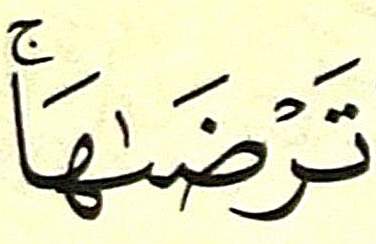 تَرْضَىٰهَاۚ